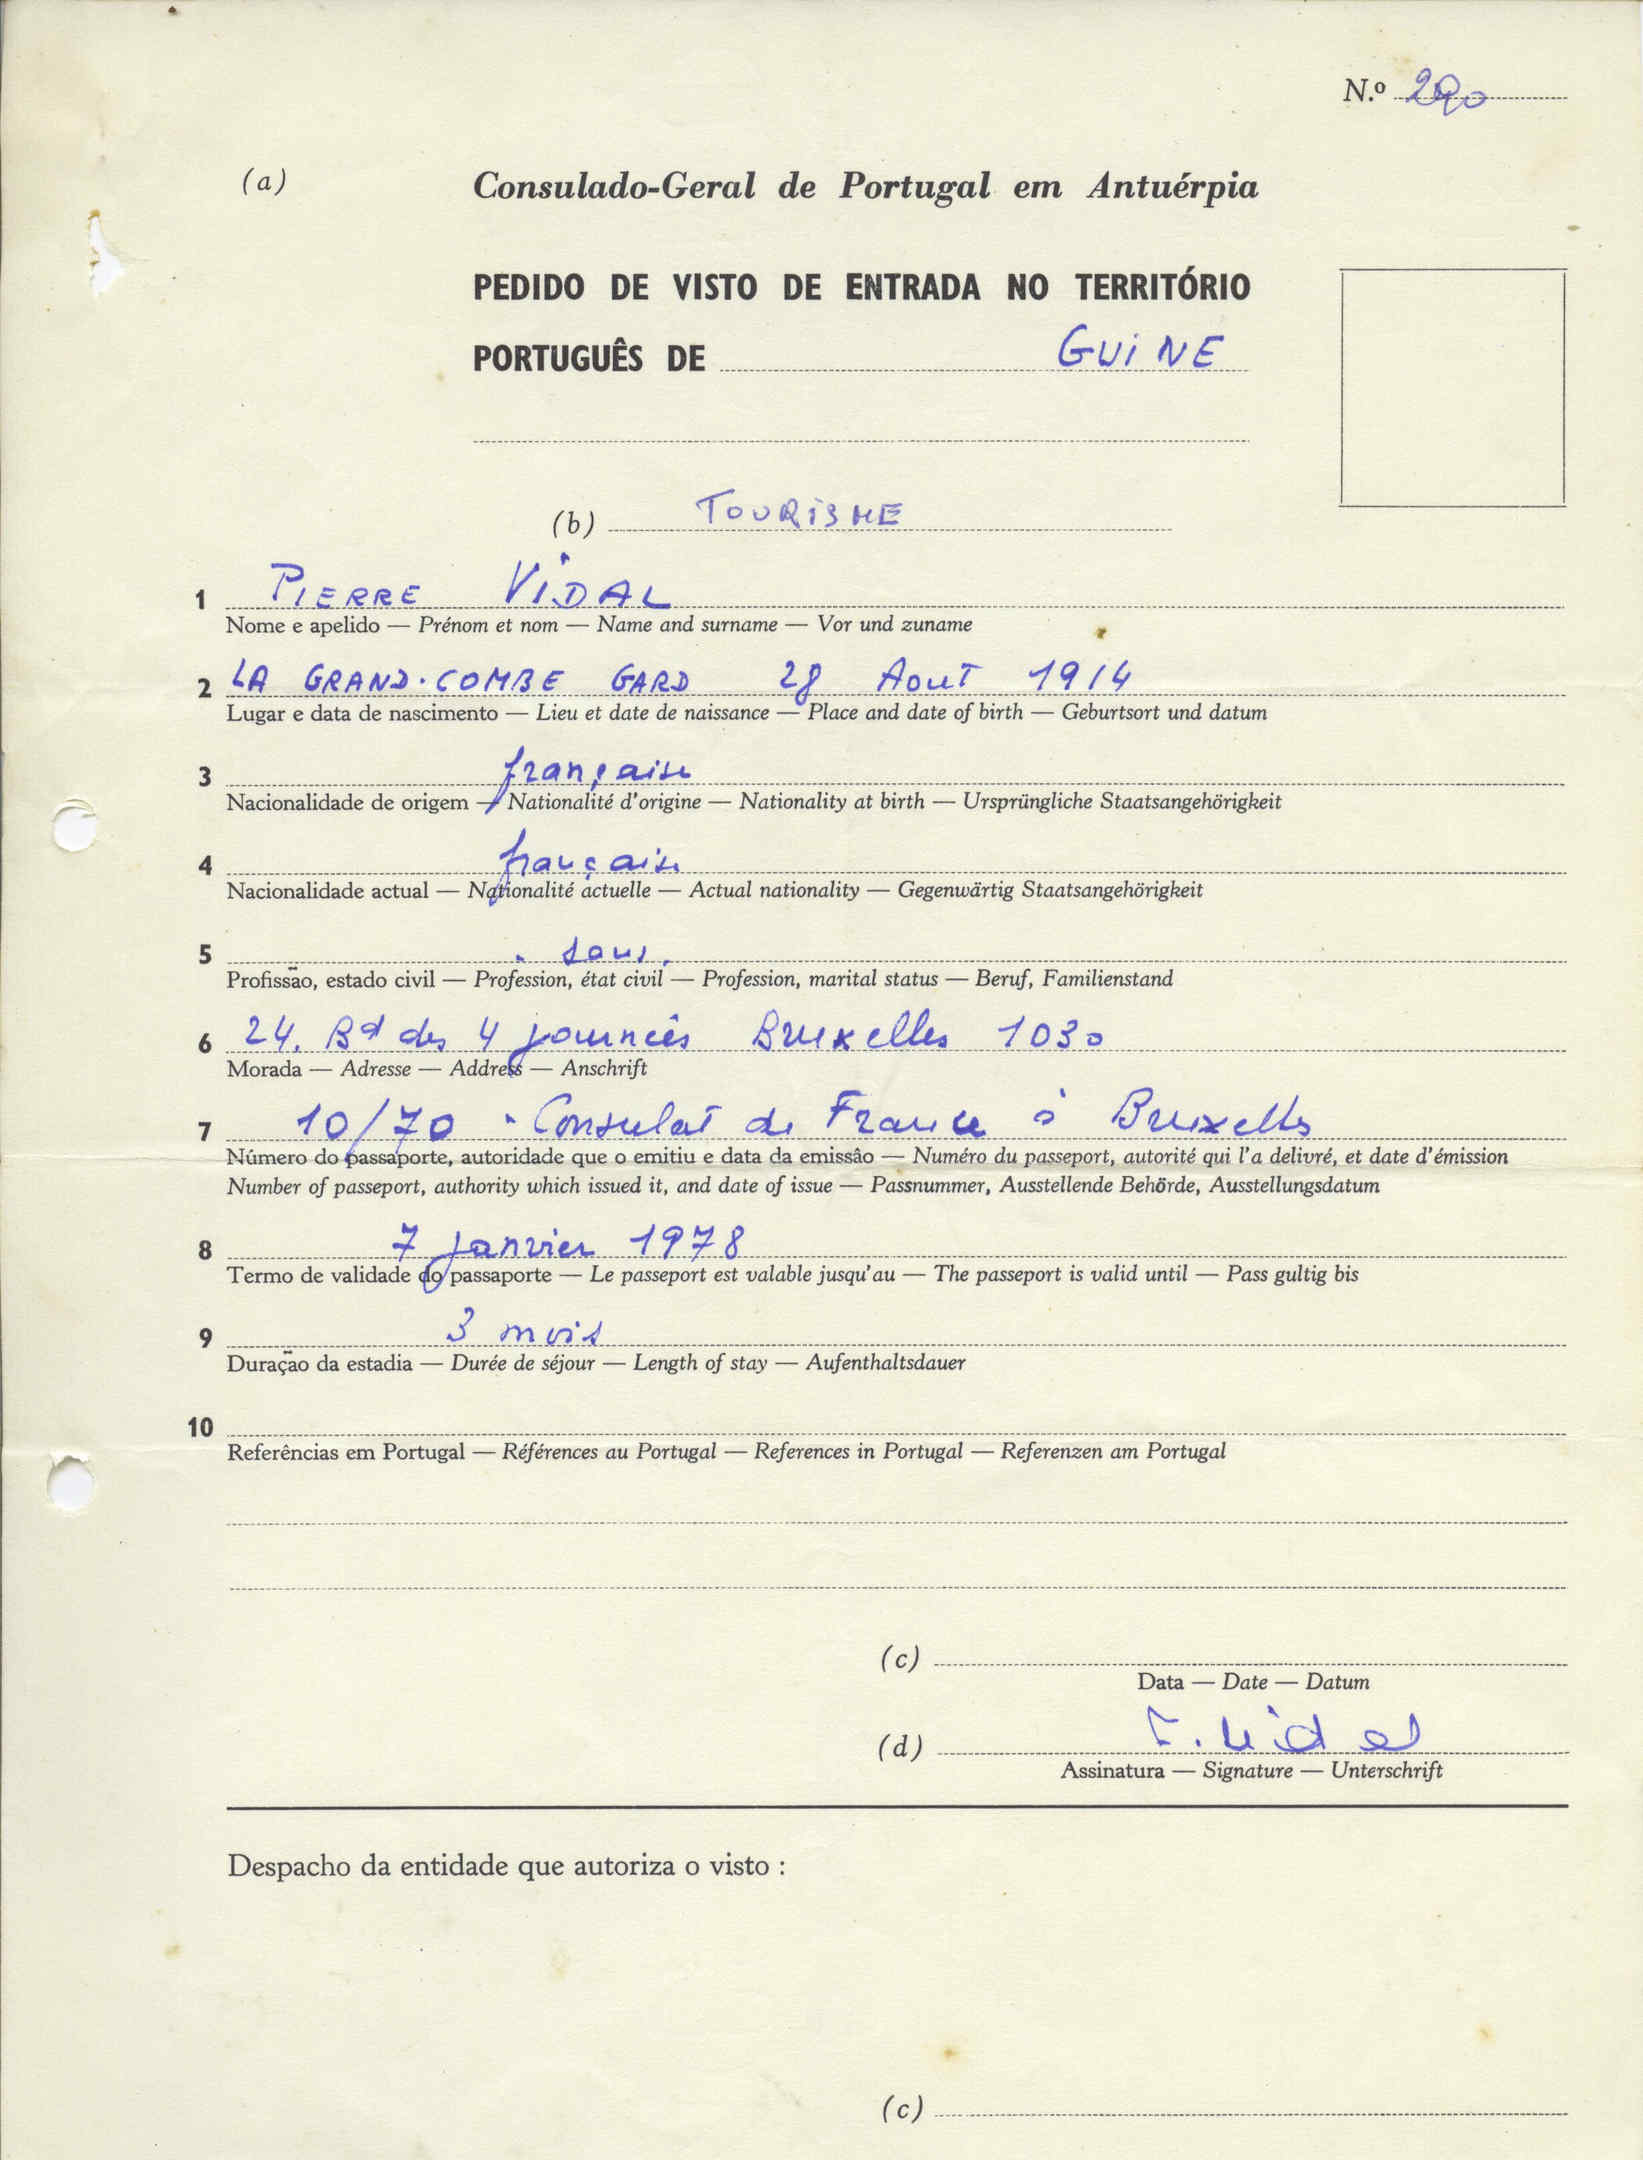 N.º 290
(a) Consulado-Geral de Portugal em Antuérpia
PEDIDO DE VISTO DE ENTRADA NO TERRITÓRIO
PORTUGUÊS DE GUINE
(b) TOURISME
1 PIERRE VIDAL
Nome e apelido — Prénom et nom — Name and surname — Vor und zuname
2 LA GRAND·COMBE GARD 28 Aout 1914
Lugar e data de nascimento — Lieu et date de naissance — Place and date of birth — Geburtsort und datum
3 française
Nacionalidade de origem — Nationalité d'origine — Nationality at birth — Ursprüngliche Staatsangehörigkeit
4 française
Nacionalidade actual — Nationalité actuelle — Actual nationality — Gegenwärtig Staatsangehörigkeit
5 . sans.
Profissão, estado civil — Profession, état civil — Profession, marital status — Beruf, Familienstand
6 24. Bd des 4 journées Bruxelles 1030
Morada — Adresse — Address — Anschrift
7 10/70 - Consulat de France à Bruxelles
Número do passaporte, autoridade que o emitiu e data da emissâo — Numéro du passeport, autorité qui l'a delivré, et date d'émission
Number of passeport, authority which issued it, and date of issue — Passnummer, Ausstellende Behörde, Ausstellungsdatum
8 7 janvier 1978
Termo de validade do passaporte — Le passeport est valable jusqu'au — The passeport is valid until — Pass gultig bis
9 3 mois
Duração da estadia — Durée de séjour — Length of stay — Aufenthaltsdauer
10
Referências em Portugal — Références au Portugal — References in Portugal — Referenzen am Portugal
(c)
Data — Date — Datum
(d) P. Vidal
Assinatura — Signature — Unterschrift
Despacho da entidade que autoriza o visto :
(c)